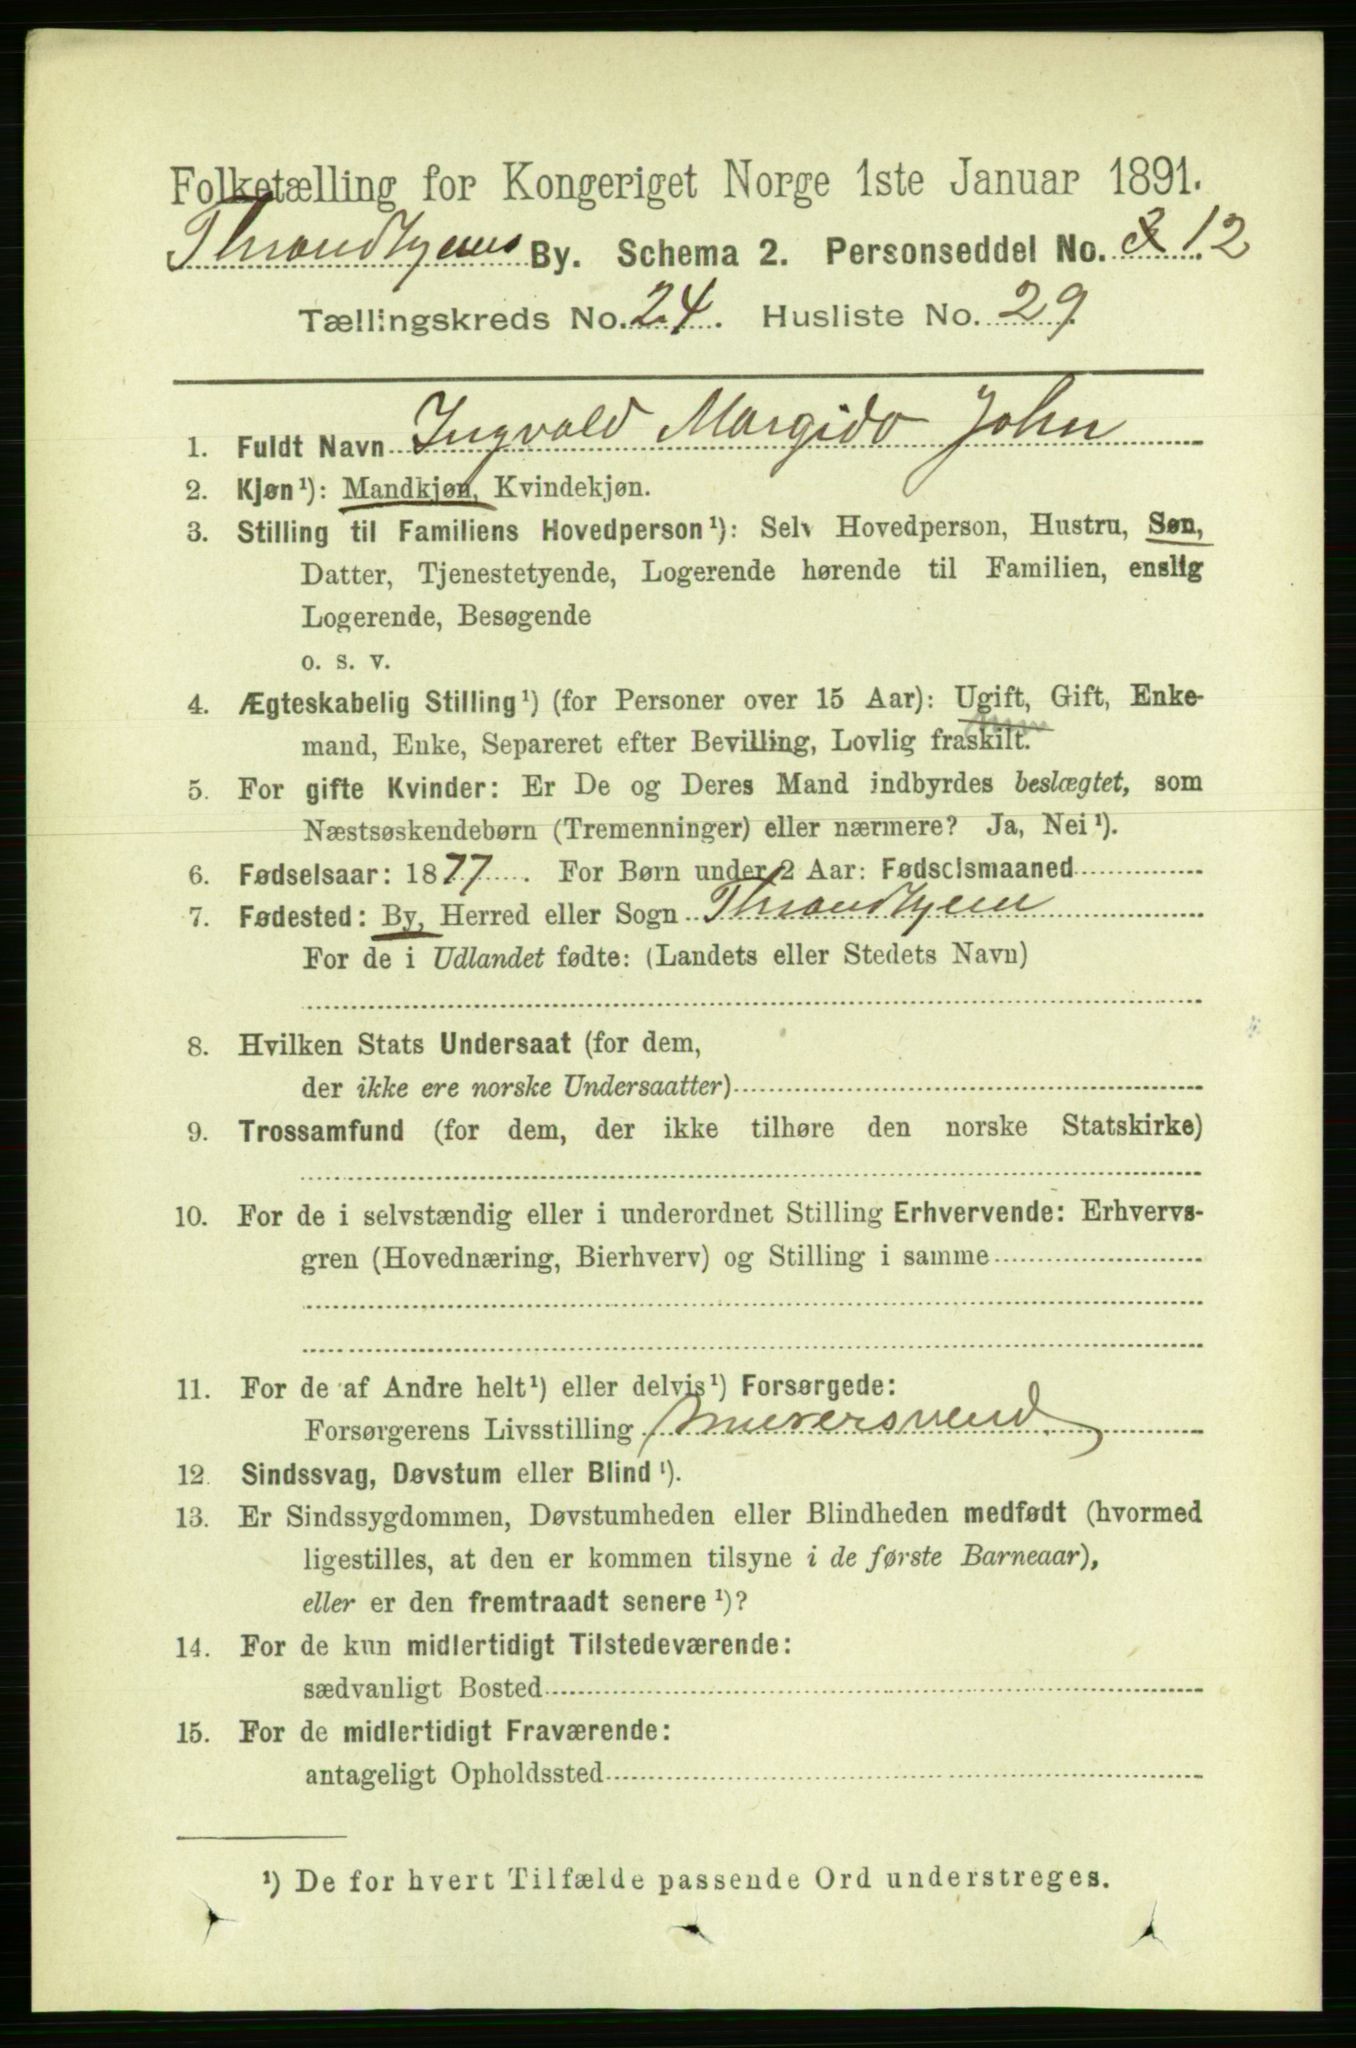 Folketælling for Kongeriget Norge 1ste Januar 1891.
Throndhjems By. Schema 2. Personseddel No. 12
Tællingskreds No. 24. Husliste No. 29
1. Fuldt Navn Ingvald Margido John
2. Kjøn¹): Mandkjøn, Kvindekjøn.
3. Stilling til Familiens Hovedperson¹): Selv Hovedperson, Hustru, Søn,
Datter, Tjenestetyende, Logerende hørende til Familien, enslig
Logerende, Besøgende
o. s. v.
4. Ægteskabelig Stilling¹) (for Personer over 15 Aar): Ugift, Gift, Enke-
mand, Enke, Separeret efter Bevilling, Lovlig fraskilt.
5. For gifte Kvinder: Er De og Deres Mand indbyrdes beslægtet, som
Næstsøskendebørn (Tremenninger) eller nærmere? Ja, Nei¹).
6. Fødselsaar: 1877. For Børn under 2 Aar: Fødselsmaaned
7. Fødested: By, Herred eller Sogn Throndhjem
For de i Udlandet fødte: (Landets eller Stedets Navn)
8. Hvilken Stats Undersaat (for dem,
der ikke ere norske Undersaatter)
9. Trossamfund (for dem, der ikke tilhøre den norske Statskirke)
10. For de i selvstændig eller i underordnet Stilling Erhvervende: Erhvervs-
gren (Hovednæring, Bierhverv) og Stilling i samme
11. For de af Andre helt¹) eller delvis¹) Forsørgede:
Forsørgerens Livsstilling Murersvend
12. Sindssvag, Døvstum eller Blind¹).
13. Er Sindssygdommen, Døvstumheden eller Blindheden medfødt (hvormed
ligestilles, at den er kommen tilsyne i de første Barneaar),
eller er den fremtraadt senere¹)?
14. For de kun midlertidigt Tilstedeværende:
sædvanligt Bosted
15. For de midlertidigt Fraværende:
antageligt Opholdssted
¹) De for hvert Tilfælde passende Ord understreges.